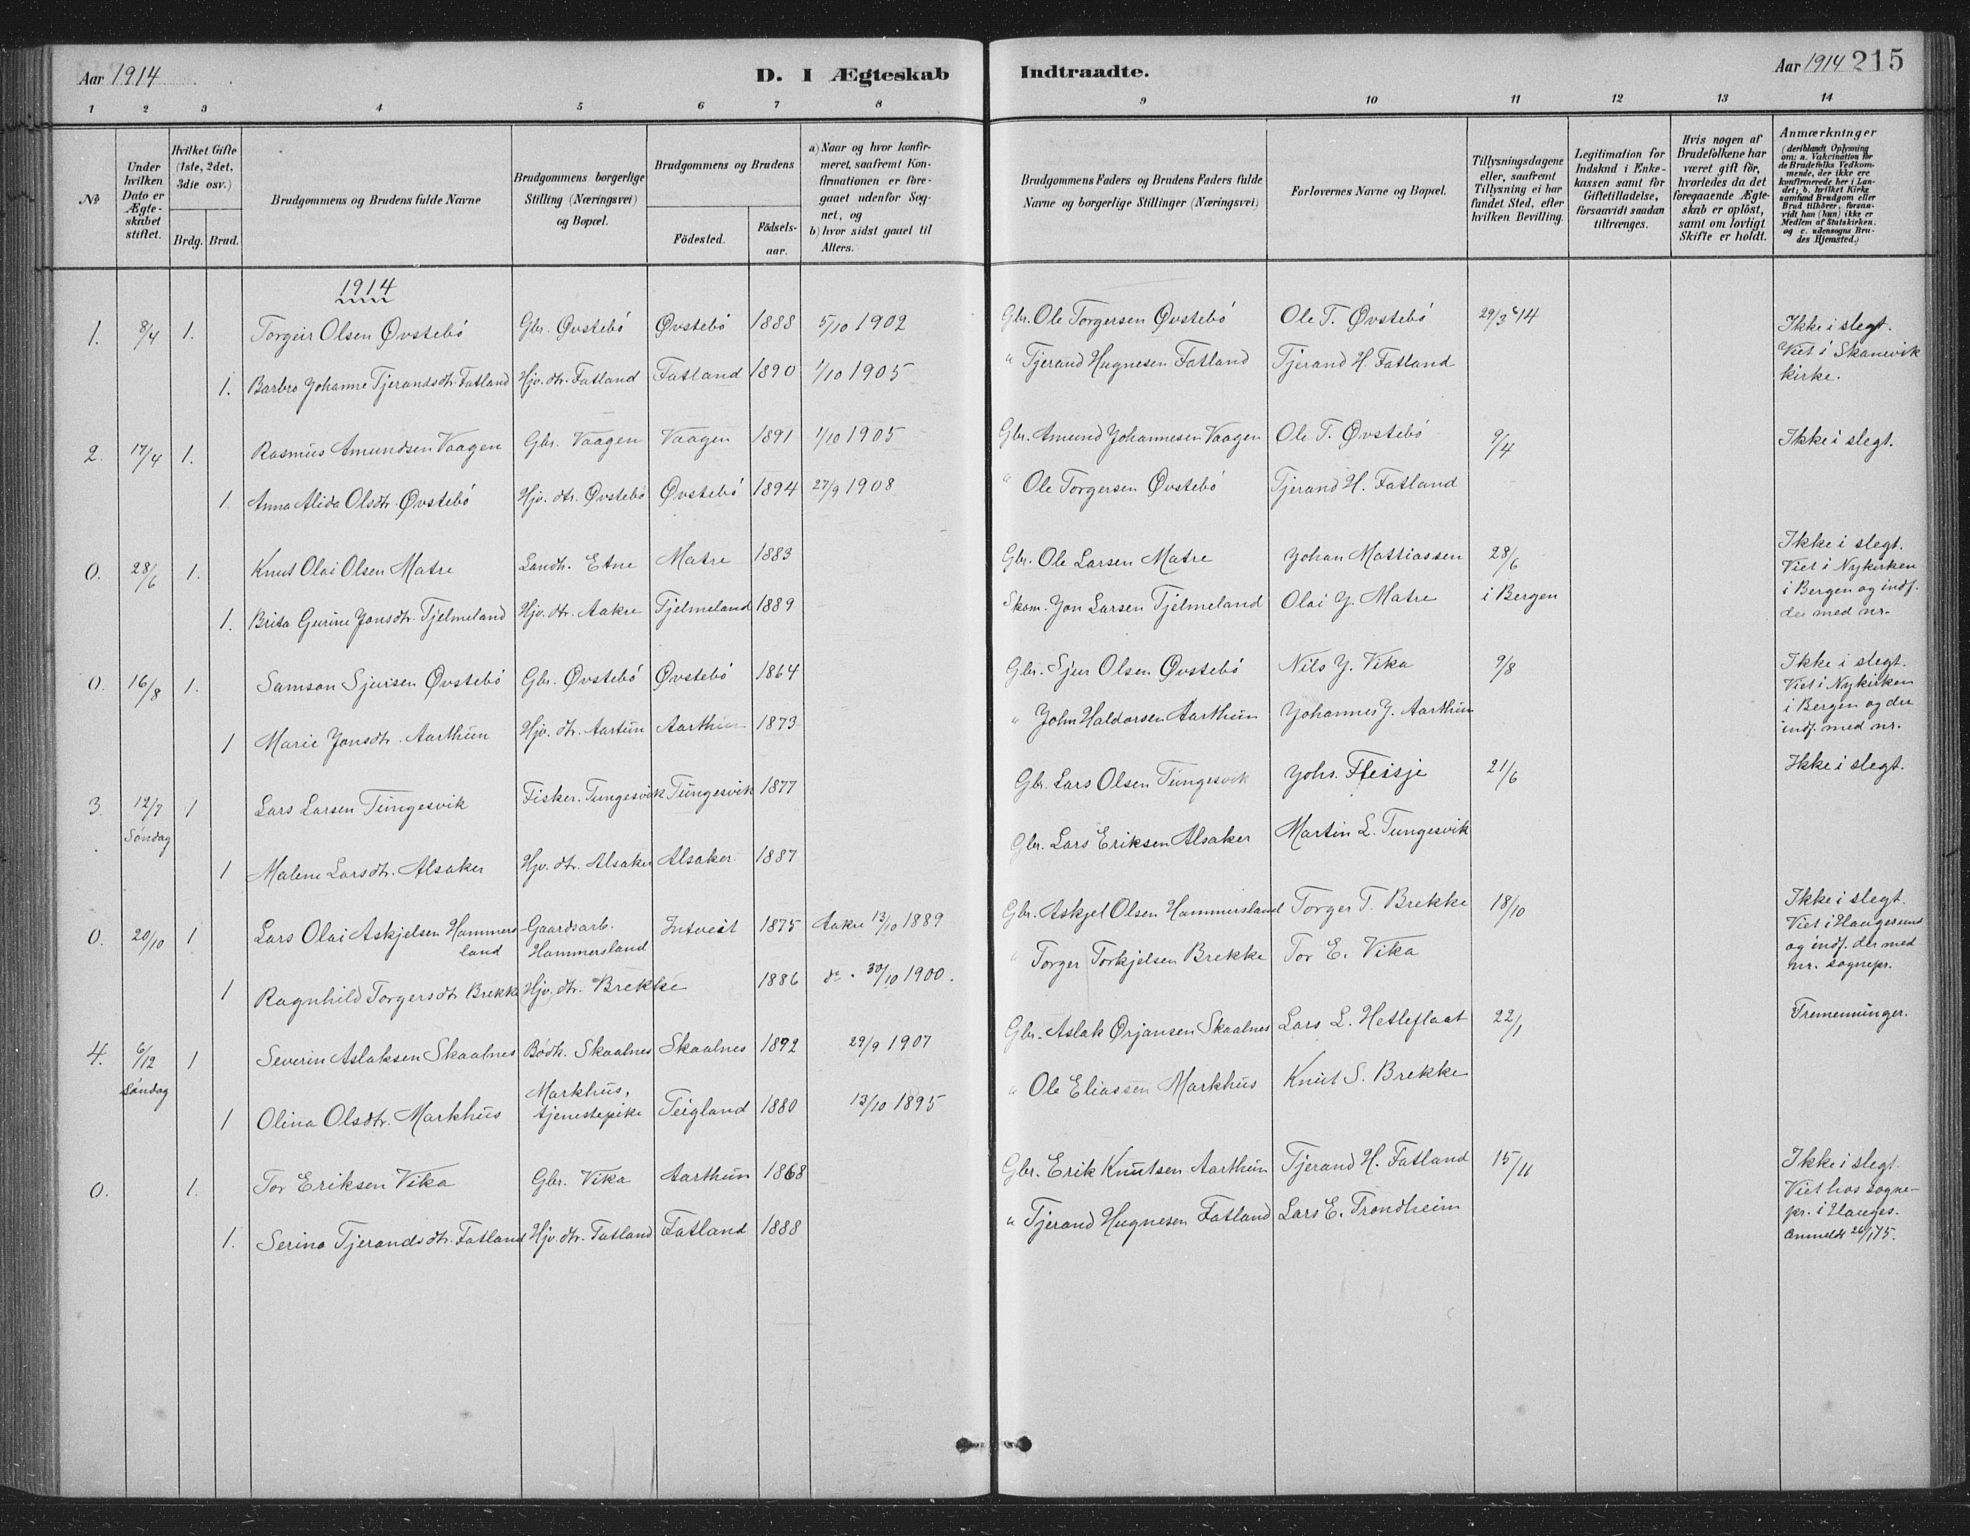 Aar 1914
D. I Ægteskab Indtraadte.
Aar 1914 215
1 2 3 4 5 6 7 8 9 10 11 12 13 14
No
Under hvilken Dato er Ægteskabet stiftet.
Hvilket Gifte (1ste, 2det, 3die osv.)
Brdg. Brud.
Brudgommens og Brudens fulde Navne
Brudgommens borgerlige Stilling (Næringsvei) og Bopæl.
Brudgommens og Brudens
Fødested.
Fødselsaar.
a) Naar og hvor konfirmeret, saafremt Konfirmationen er foregaaet udenfor Sognet, og
b) hvor sidst gaaet til Alters.
Brudgommens Faders og Brudens Faders fulde Navne og borgerlige Stillinger (Næringsvei)
Forlovernes Navne og Bopæl.
Tillysningsdagene eller, saafremt Tillysning ei har fundet Sted, efter hvilken Bevilling.
Legitimation for Indskud i Enkekassen samt for Giftetilladelse, forsaavidt saadan tiltrænges.
Hvis nogen af Brudefolkene har været gift før, hvorledes da det foregaaende Ægteskab er opløst, samt om lovligt Skifte er holdt.
Anmærkninger (deriblandt Oplysning om: a. Vakcination for de Brudefolks Vedkommende, der ikke ere konfirmerede her i Landet; b. hvilket Kirkesamfund Brudgom eller Brud tilhører, forsaavidt han (hun) ikke er Medlem af Statskirken. og c. udensogns Brudes Hjemsted.)
1914
1. 8/4 1. Torgeir Olsen Øvstebö Gbr. Øvstebö Øvstebö 1888 5/10 1902 Gbr. Ole Torgersen Øvstebö Ole T. Øvstebö 29/3 14 Ikke i slegt. Viet i Skanevik kirke.
1. Barbro Johanne Tjerandsdtr. Fatland Hjv. dtr. Fatland Fatland 1890 1/10 1905 " Tjerand Hugnesen Fatland Tjerand H. Fatland
2. 17/4 1. Rasmus Amundsen Vaagen Gbr. Vaagen Vaagen 1891 1/10 1905 Gbr. Amund Johannesen Vaagen Ole T. Øvstebö 9/4 Ikke i slegt.
1. Anna Alida Olsdtr. Øvstebö Hjv. dtr. Øvstebö Øvstebö 1894 27/9 1908 " Ole Torgersen Øvstebö Tjerand H. Fatland
0. 28/6 1. Knut Olai Olsen Matre Landh. Etne Matre 1883 Gbr. Ole Larsen Matre Johan Mattiassen 28/6 Ikke i slegt. Viet i Nykirken i Bergen og indf. der med nr.
1. Brita Gurine Jonsdtr. Tjelmeland Hjv. dtr. Aakre Tjelmeland 1889 Skom. Jon Larsen Tjelmeland Olai J. Matre i Bergen
0. 16/8 1. Samson Sjursen Øvstebö Gbr. Øvstebö Øvstebö 1864 Gbr. Sjur Olsen Øvstebö Nils J. Vika 9/8 Ikke i slegt. Viet i Nykirken i Bergen og der indf. med nr.
1 Marie Jonsdtr. Aarthun Hjv. dtr. Aartun Aarthun 1873 " John Haldorsen Aarthun Johannes J. Aarthun
3. 12/7 Söndag 1 Lars Larsen Tungesvik Fisker. Tungesvik Tungesvik 1877 Gbr. Lars Olsen Tungesvik Johs. Fleisje 21/6 Ikke i slegt.
1 Malene Larsdtr. Alsaker Hjv. dtr. Alsaker Alsaker 1887 Gbr. Lars Eriksen Alsaker Martin L. Tungesvik
0. 20/10 1 Lars Olai Askjelsen Hammersland Gaardsarb. Hammersland Intveit 1875 Aakre 13/10 1889 Gbr. Askjel Olsen Hammersland Torger T. Brekke 18/10 Ikke i slegt. Viet i Haugesund og indf. der med nr. sognepr.
1 Ragnhild Torgersdtr Brekke Hjv. dtr. Brekke 1886 do. 30/10 1900. " Torger Torkjelsen Brekke Tor E. Vika
4. 6/12 Söndag 1 Severin Aslaksen Skaalnes Bödk. Skaalnes Skaalnes 1892 29/9 1907 Gbr. Aslak Ørjansen Skaalnes Lars L. Hetleflaat 22/1 Tremenninger.
1 Olina Olsdtr. Markhus Markhus, tjenestepike Teigland 1880 13/10 1895 " Ole Eliassen Markhus Knut S. Brekke
0. 1. Tor Eriksen Vika Gbr. Vika Aarthun 1868 Gbr. Erik Knutsen Aarthun Tjerand H. Fatland 15/11 Ikke i slegt. Viet hos sognepr. i Hauges. Anmeldt 20/1 15.
1. Serina Tjerandsdtr. Fatland Hjv. dtr. Fatland Fatland 1888 " Tjerand Hugnesen Fatland Lars E. Trondheim